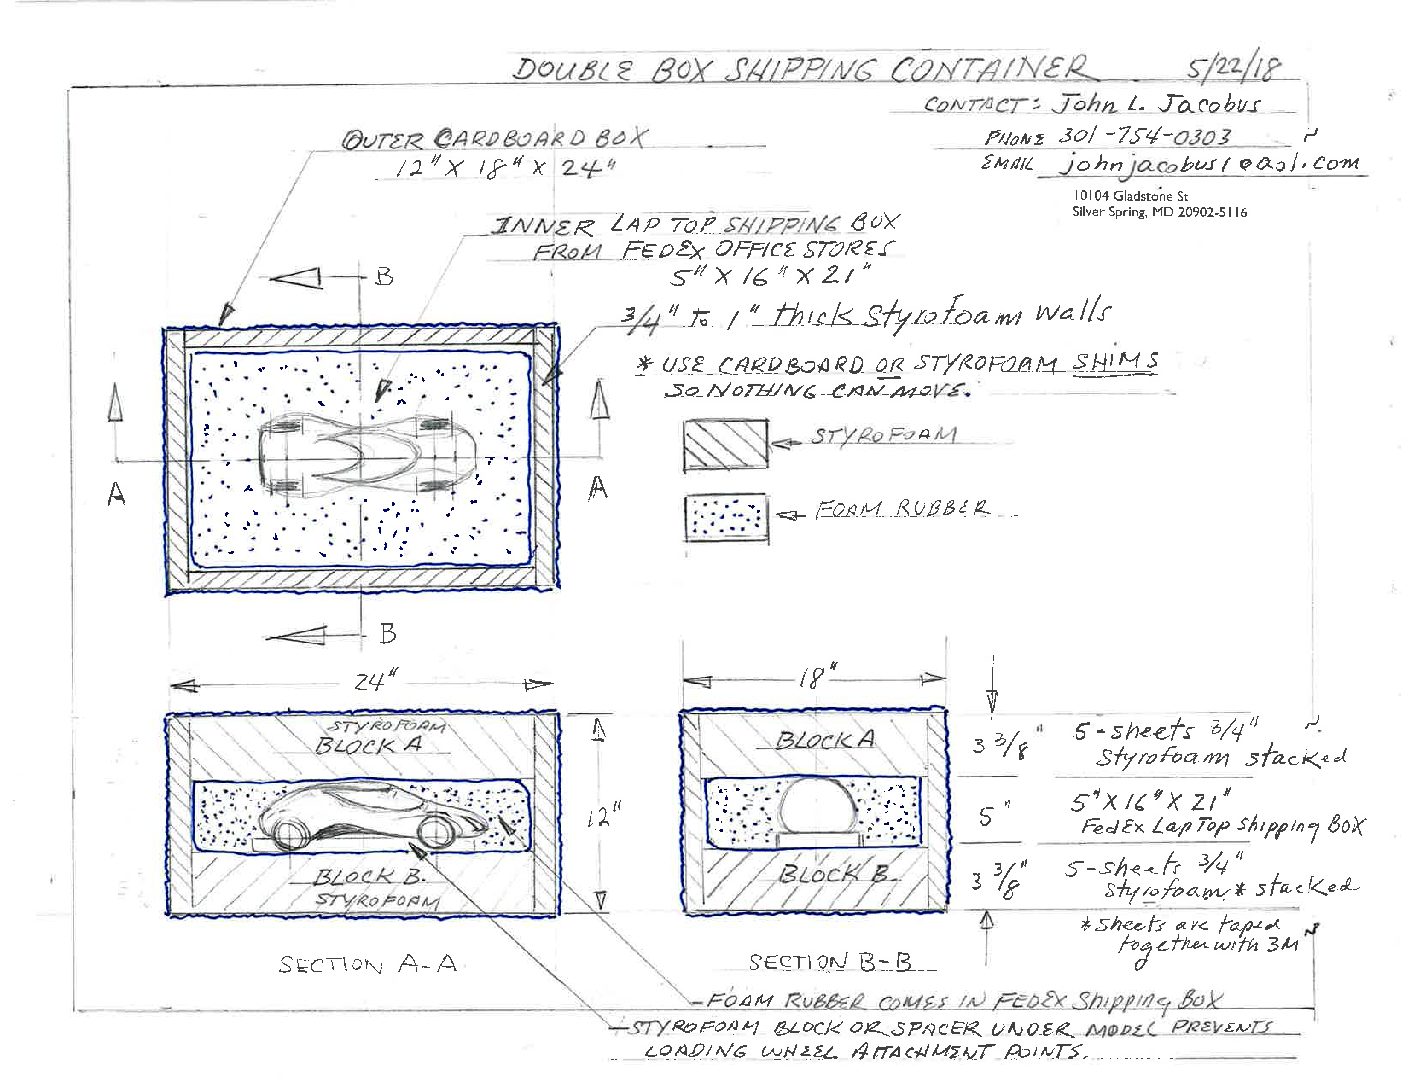 DOUBLE BOX SHIPPING CONTAINER 5/22/18
CONTACT: John L. Jacobus
PHONE 301-754-0303
EMAIL johnjacobus1@aol.com
10104 Gladstone St
Silver Spring, MD 20902-5116
OUTER CARDBOARD BOX
12" X 18" X 24"
INNER LAP TOP SHIPPING BOX
FROM FEDEX OFFICE STORES
5" X 16" X 21"
3/4" To 1" thick Styrofoam walls
* USE CARDBOARD OR STYROFOAM SHIMS
SO NOTHING CAN MOVE.
STYROFOAM
FOAM RUBBER
B
A
A
B
24"
STYROFOAM
BLOCK A
12"
BLOCK B.
STYROFOAM
SECTION A-A
18"
BLOCK A
BLOCK B.
SECTION B-B
3 3/8" 5-sheets 3/4"
Styrofoam stacked
5" 5" X 16" X 21"
FedEx Lap Top Shipping BOX
3 3/8" 5-sheets 3/4"
Styrofoam* stacked
*Sheets are taped
together with 3M
FOAM RUBBER COMES IN FEDEX Shipping BOX
STYROFOAM BLOCK OR SPACER UNDER MODEL PREVENTS
LOADING WHEEL ATTACHMENT POINTS.